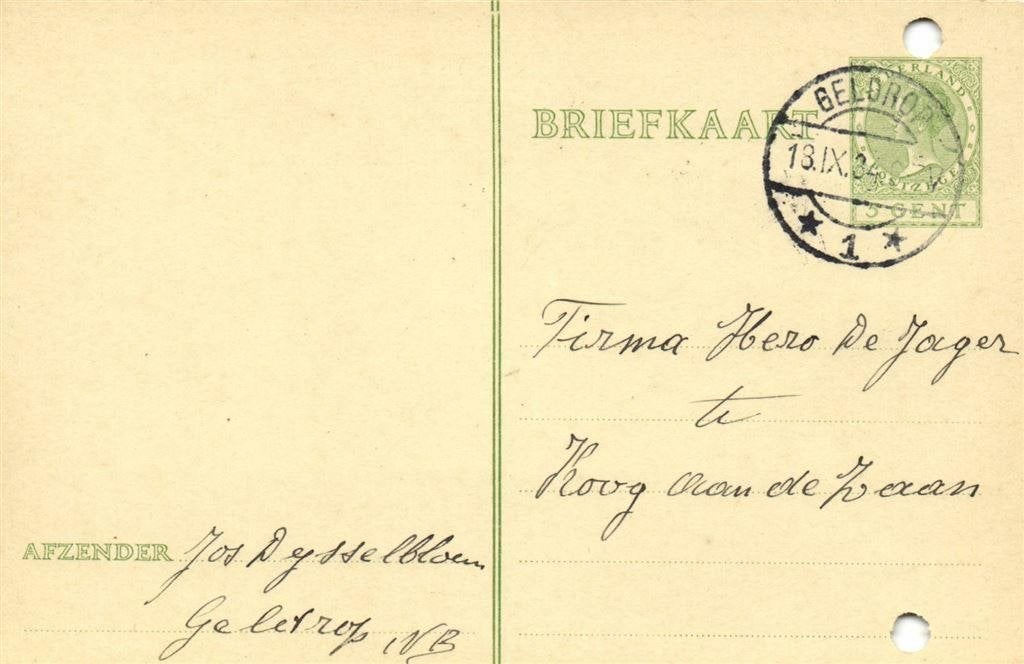 BRIEFKAART
NEDERLAND
POSTZEGEL
3 CENT
GELDROP
18.IX.34
1
Firma Hero De Jager
te
Koog aan de Zaan
AFZENDER Jos Dysselbloem
Geldrop NB